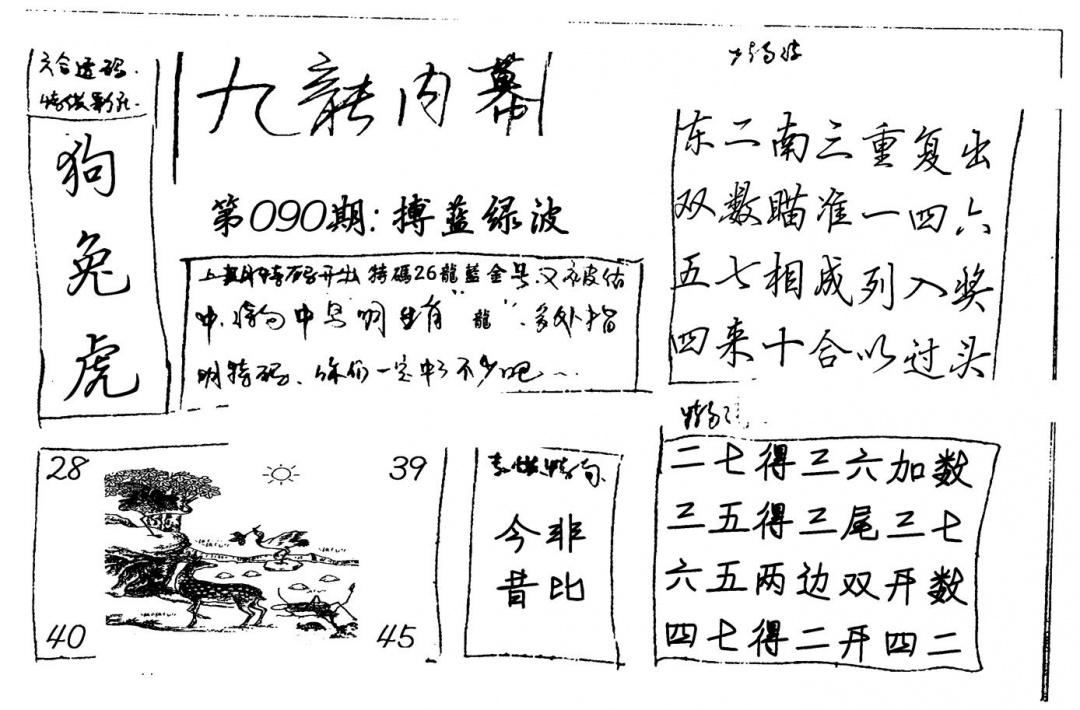 六合透码.
狗
兔
虎
九龍内幕
第090期:搏蓝绿波
上期特码开出特碼26龍藍金号,又被估
中,中 "龍",多处指
明特码、你们一定中了不少吧…
东二南三重复出
双数瞄准一四六
五七相成列入奖
四来十合以过头
28
39
40
45
今非
昔比
二七得三六加数
三五得三尾三七
六五两边双开数
四七得二开四二